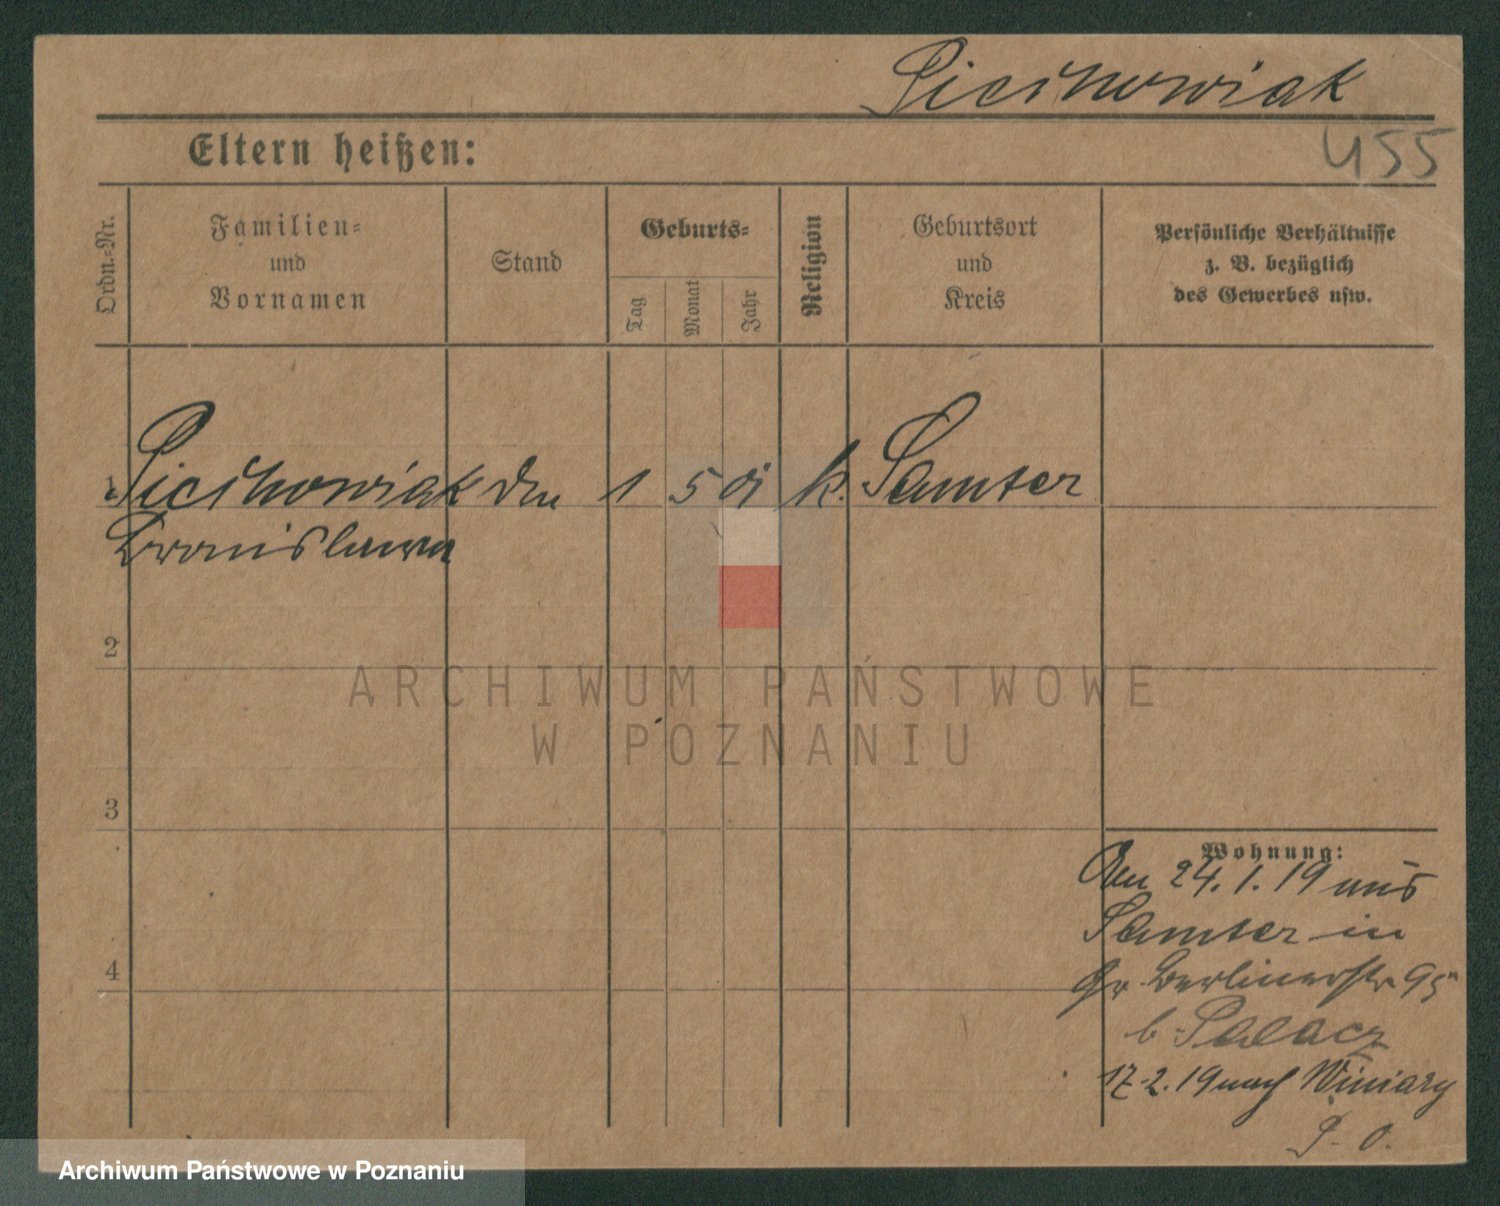 Piechowiak
455
Eltern heißen:
Ordn.-Nr.
Familien-
und
Vornamen
Stand
Geburts-
Tag
Monat
Jahr
Religion
Geburtsort
und
Kreis
Persönliche Verhältnisse
z. B. bezüglich
des Gewerbes usw.
1 Piechowiak 1 5 01 k. Samter
Bronislawa
2
3
4
Wohnung:
Den 24. 1. 19 aus
Samter in
Gr Berlinerstr 95
b Palacz
17. 2. 19 nach Winiary
P. O.
ARCHIWUM PAŃSTWOWE
W POZNANIU
Archiwum Państwowe w Poznaniu